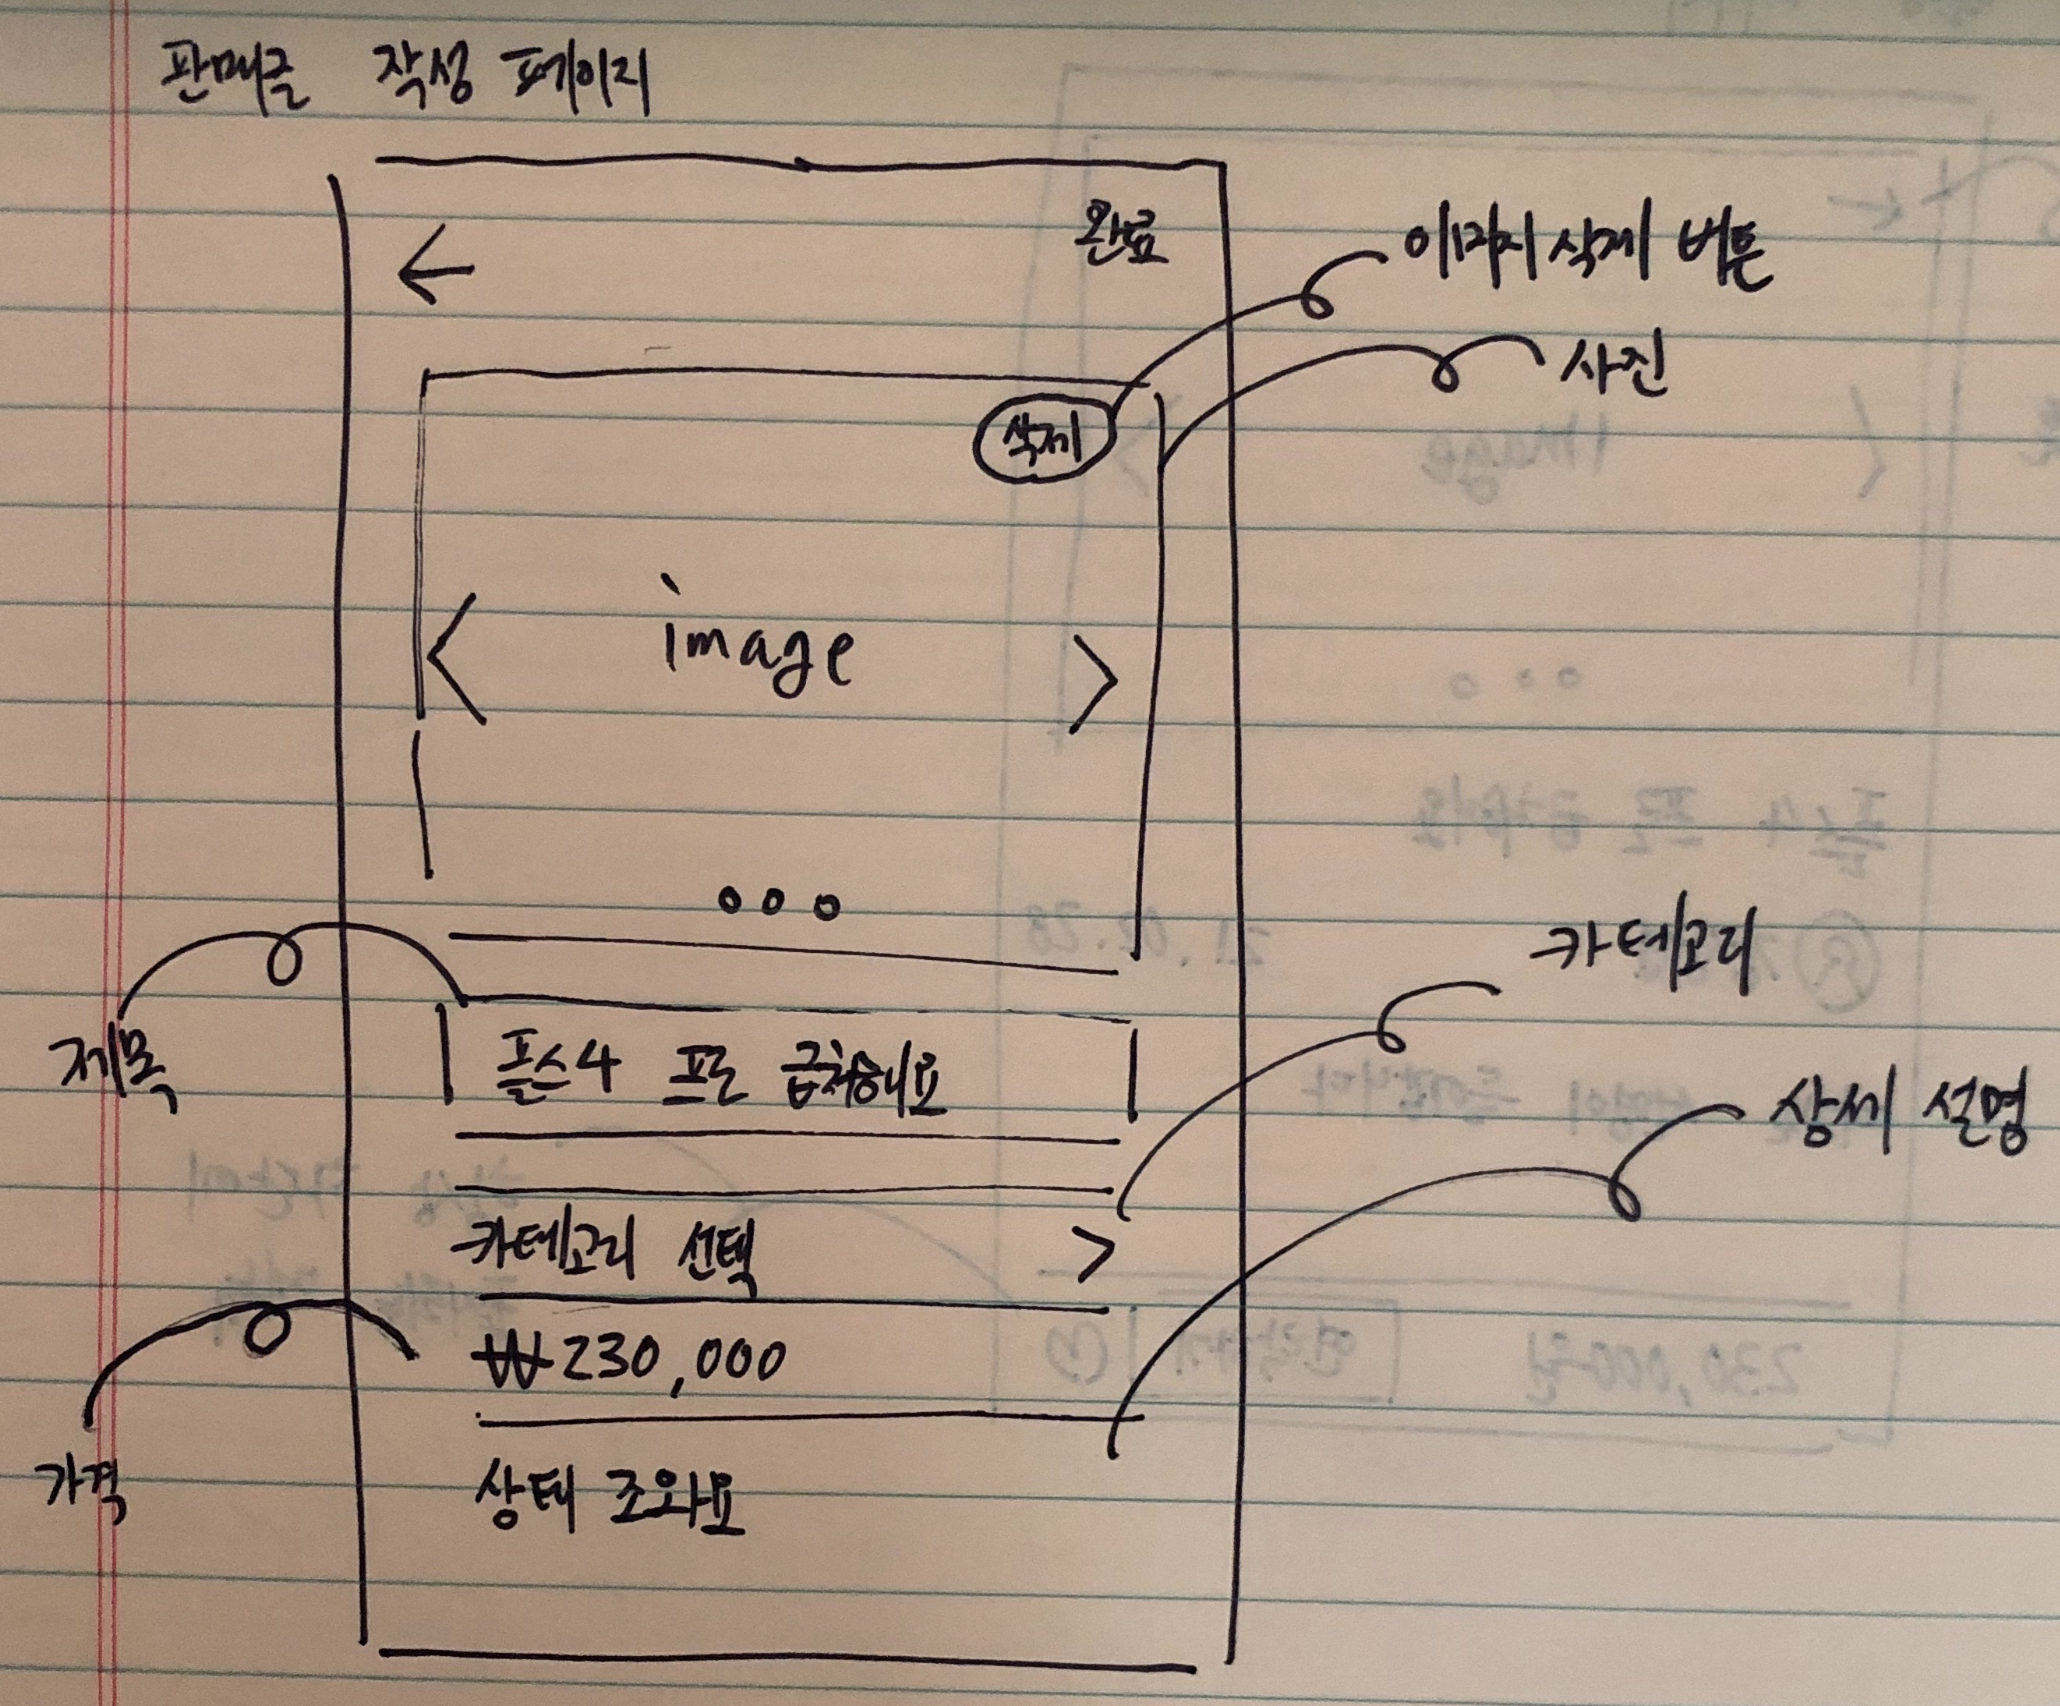 판매글 작성 페이지
← 완료
이미지 삭제 버튼
사진
삭제
< image >
제목
플스4 프로 급처해요
카테고리
카테고리 선택 >
상세 설명
가격
₩230,000
상태 조와요